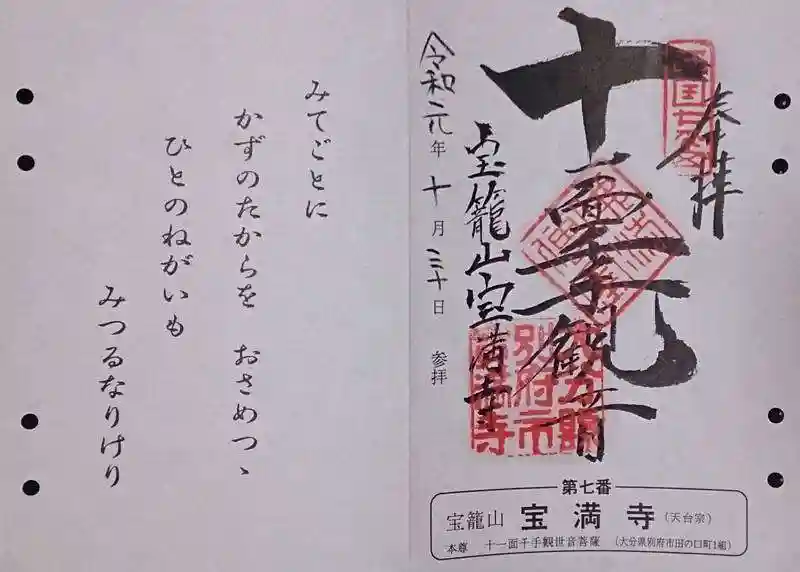 奉拝
十一面千手観音
別府市
宝籠山宝満寺
令和元年十月三十日 参拝
第七番
宝籠山 宝満寺 (天台宗)
本尊 十一面千手観世音菩薩 (大分県別府市田の口町1組)
みてごとに
かずのたからを おさめつゝ
ひとのねがいも
みつるなりけり